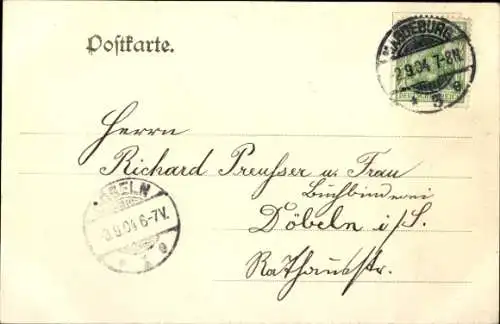 Postkarte.
MAGDEBURG
2.9.04.7-8N.
* 3 e
Herrn
Richard Preusser u. Frau
Buchbinderei
Döbeln i/S.
Rathausstr.
DÖBELN
3.9.04.6-7V.
* 1 e